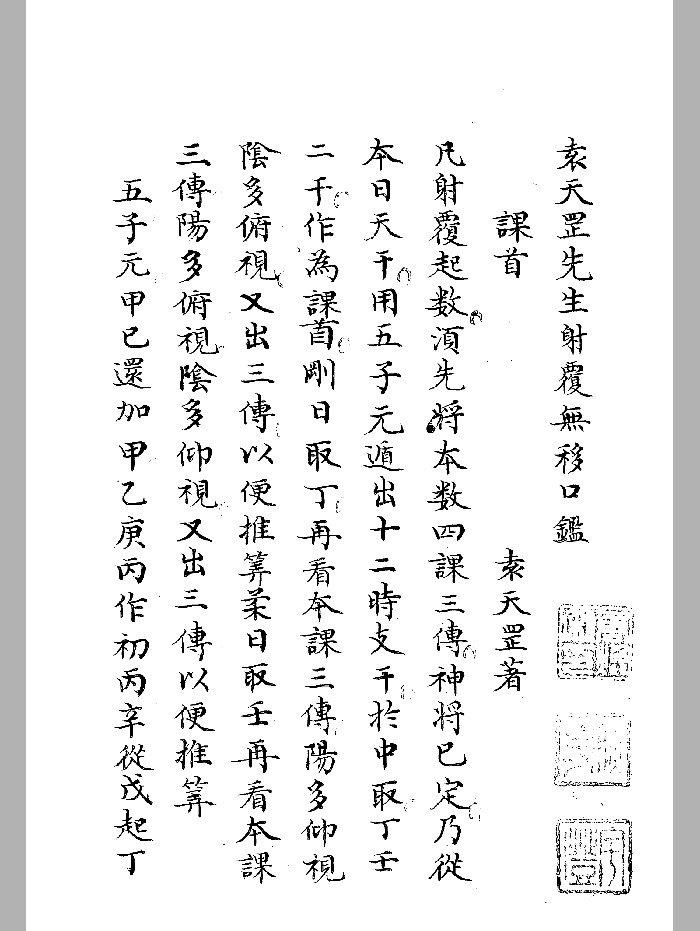 袁天罡先生射覆無移口鑑
課首　袁天罡著
凡射覆起数湏先将本数四課三傳神將已定乃從
本日天干用五子元遁出十二時支干於中取丁壬
二干作為課首剛日取丁再看本課三傳陽多仰視
陰多俯視又出三傳以便推筭柔日取壬再看本課
三傳陽多俯視陰多仰視又出三傳以便推筭
五子元甲已還加甲乙庚丙作初丙辛從戊起丁